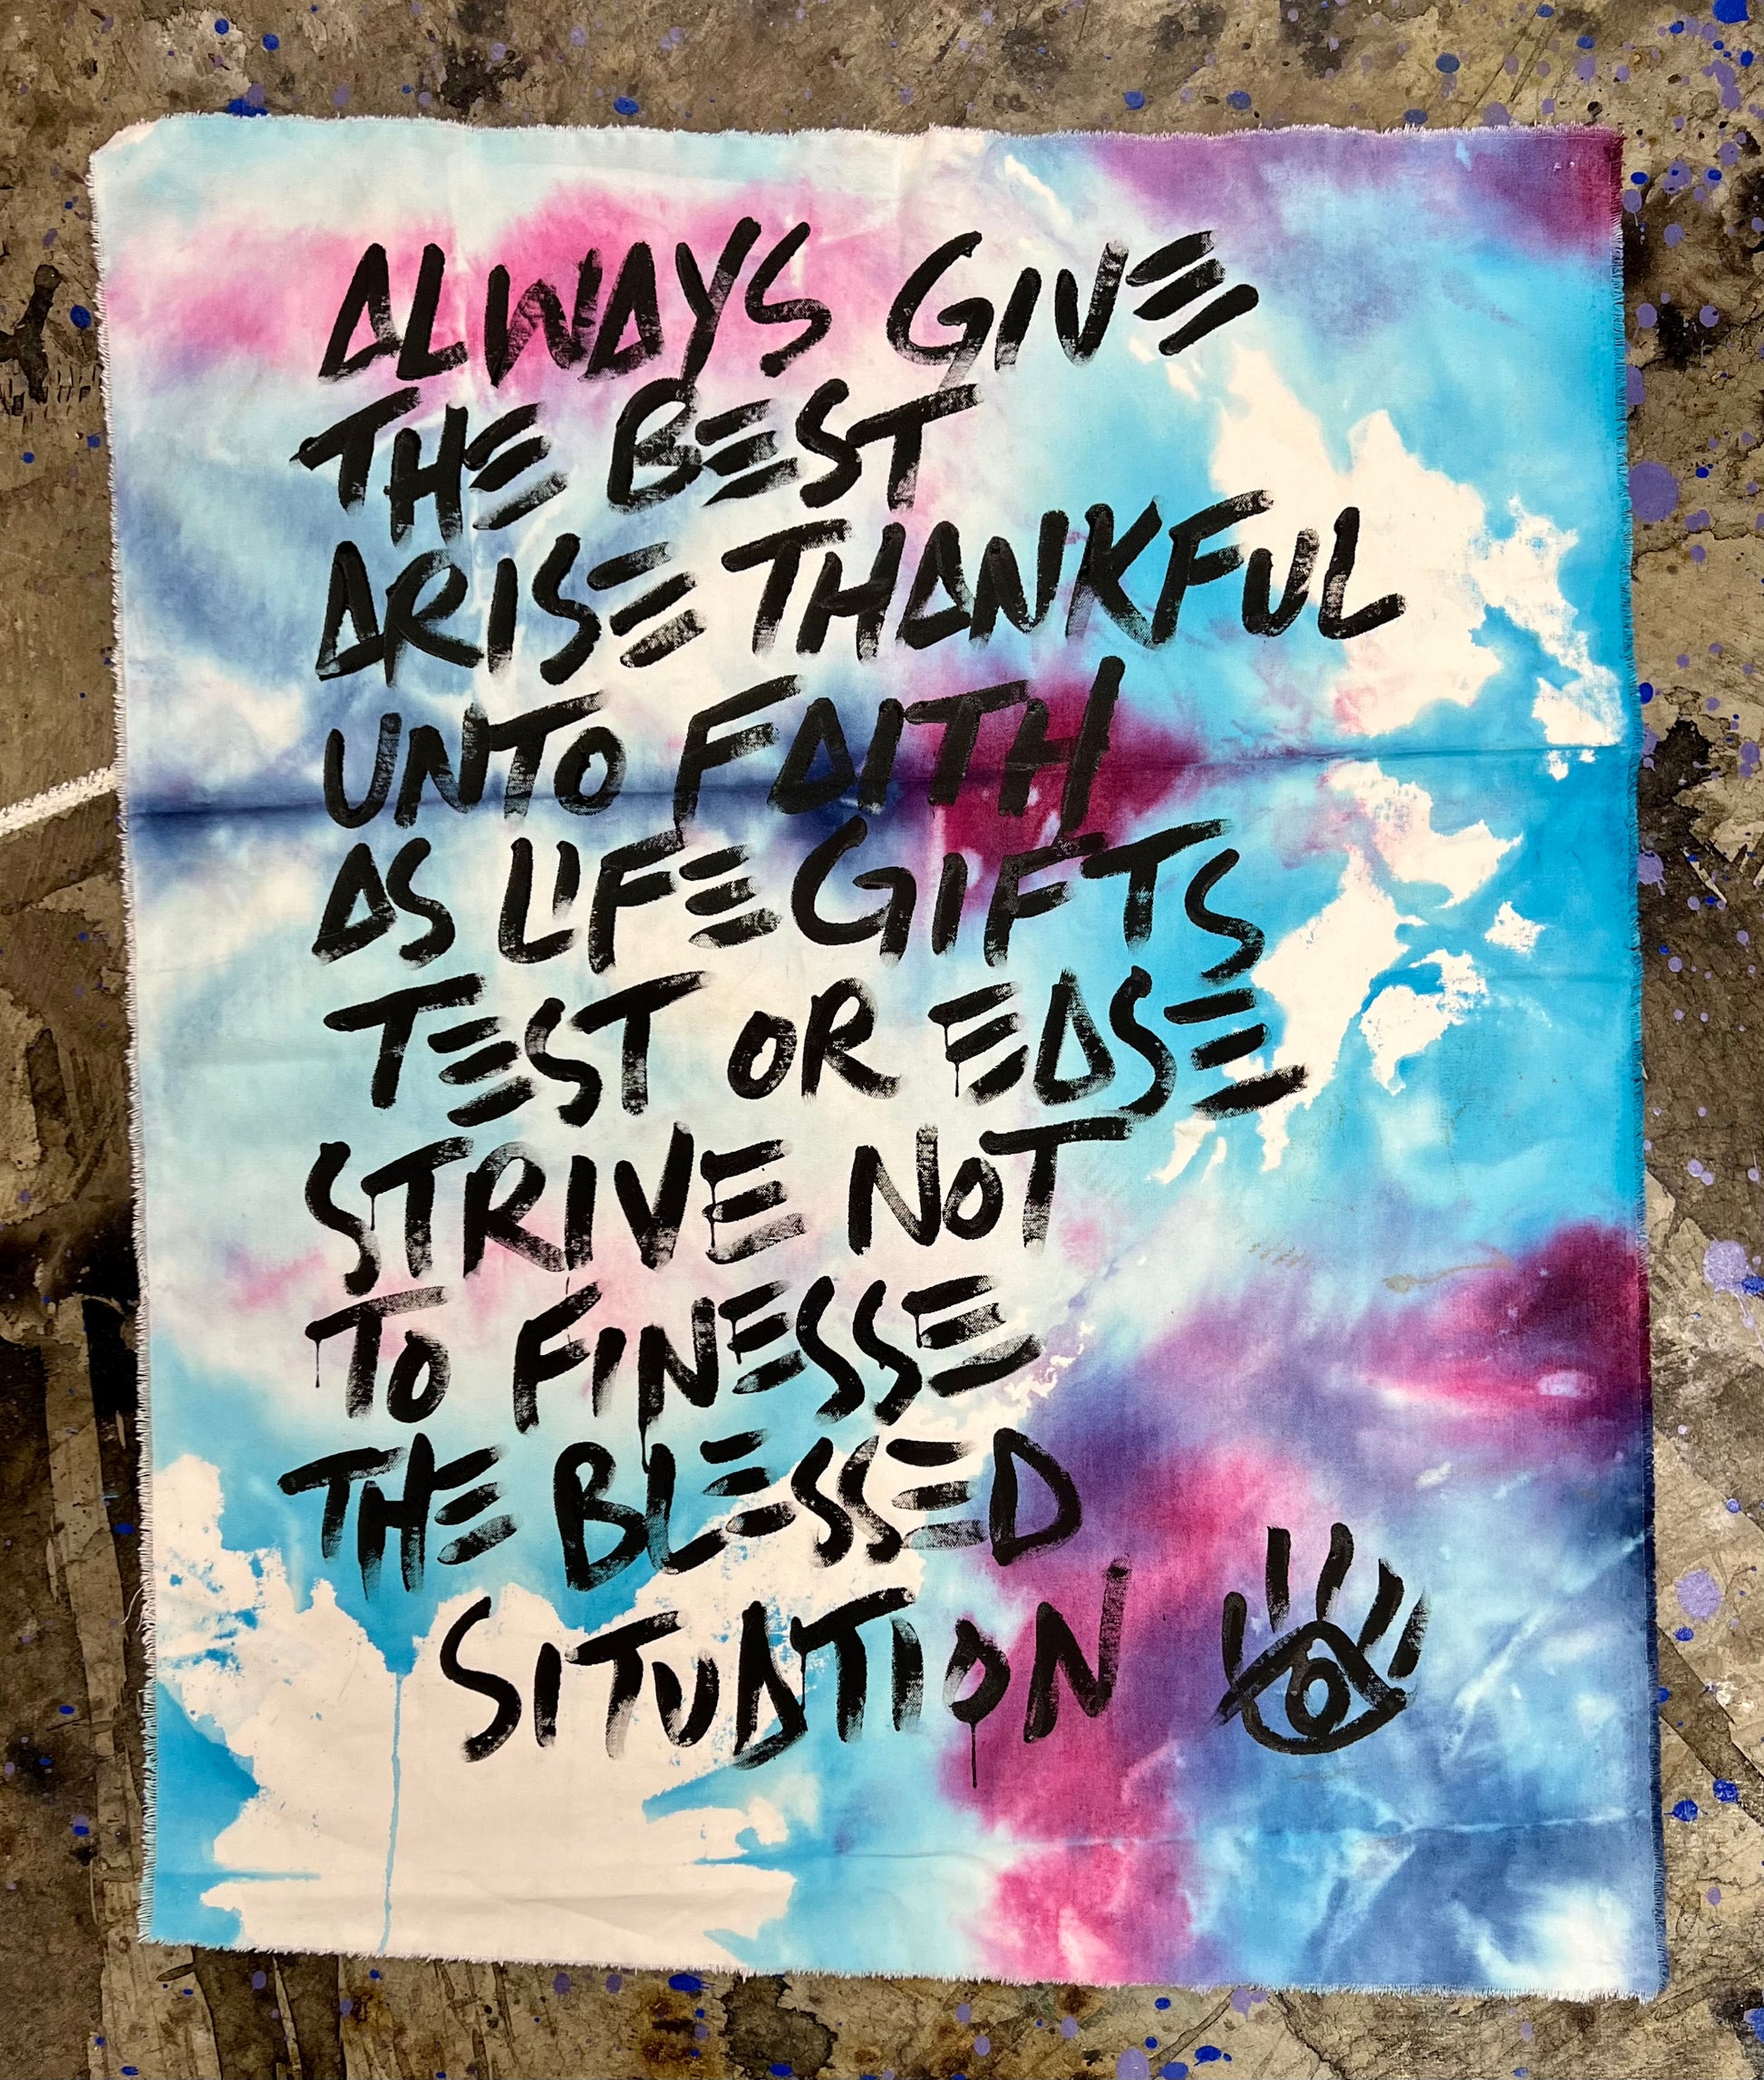 ALWAYS GIVE
THE BEST
ARISE THANKFUL
UNTO FAITH
AS LIFE GIFTS
TEST OR EASE
STRIVE NOT
TO FINESSE
THE BLESSED
SITUATION